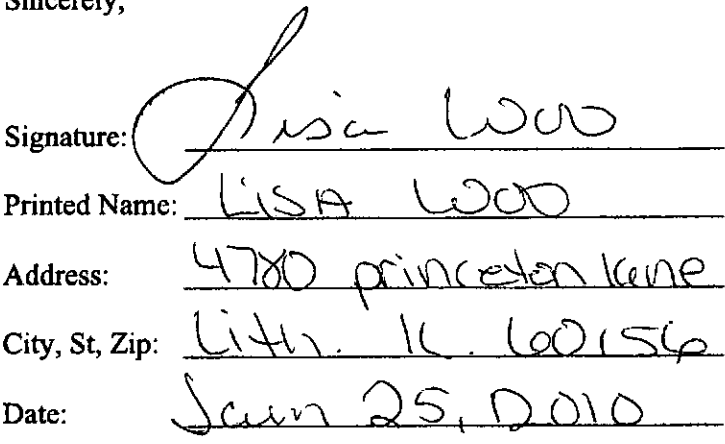 Sincerely,
Signature: Lisa Woo
Printed Name: LISA WOO
Address: 4780 princeton lane
City, St, Zip: Lith. IL. 60156
Date: Jan 25, 2010